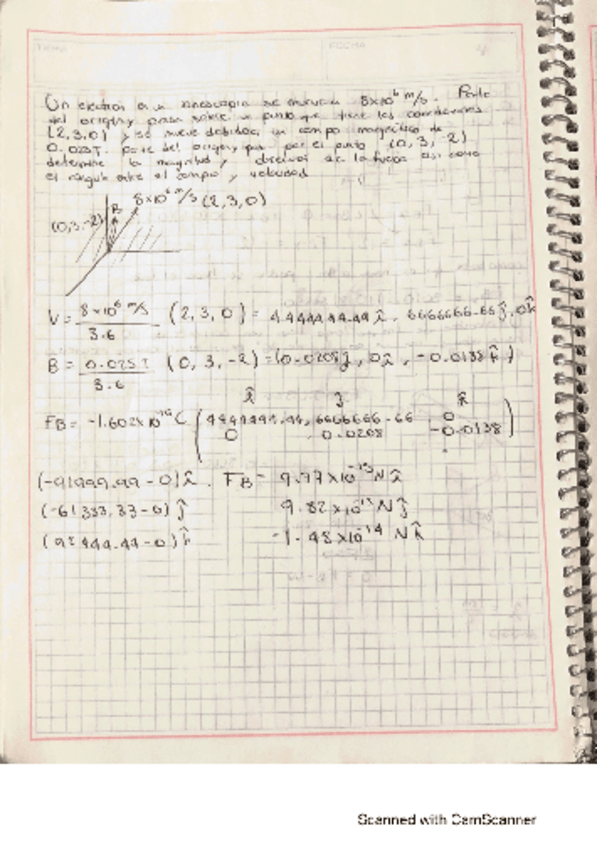 TEMA FECHA
Un electron en un cinescopio se mueve a 8x10⁶ m/s. Parte
del origen y pasa sobre un punto que tiene las coordenadas
(2,3,0) y se mueve debido a un campo magnético de
0.025T. parte del origen y pasa por el punto (0, 3, -2)
determine la magnitud y direccion de la fuerza asi como
el angulo entre el campo y velocidad
(0,3,-2) B 8x10⁶ m/s (2,3,0)
V = 8x10⁶ m/s / 3.6 (2,3,0) = 4444444.44 î, 6666666.66 ĵ, 0k̂
B = 0.025T / 3.6 (0, 3, -2) = (0.0208ĵ, 0î, -0.0138k̂)
î ĵ k̂
FB = -1.602x10⁻¹⁹ C (4444444.44, 6666666.66 0
0 0.0208 -0.0138)
(-91999.99 - 0)î. FB = 9.77x10⁻¹⁵ N î
(-61333.33 - 0) ĵ 9.82x10⁻¹⁵ N ĵ
(92444.44 - 0) k̂ -1.48x10⁻¹⁴ N k̂
Scanned with CamScanner